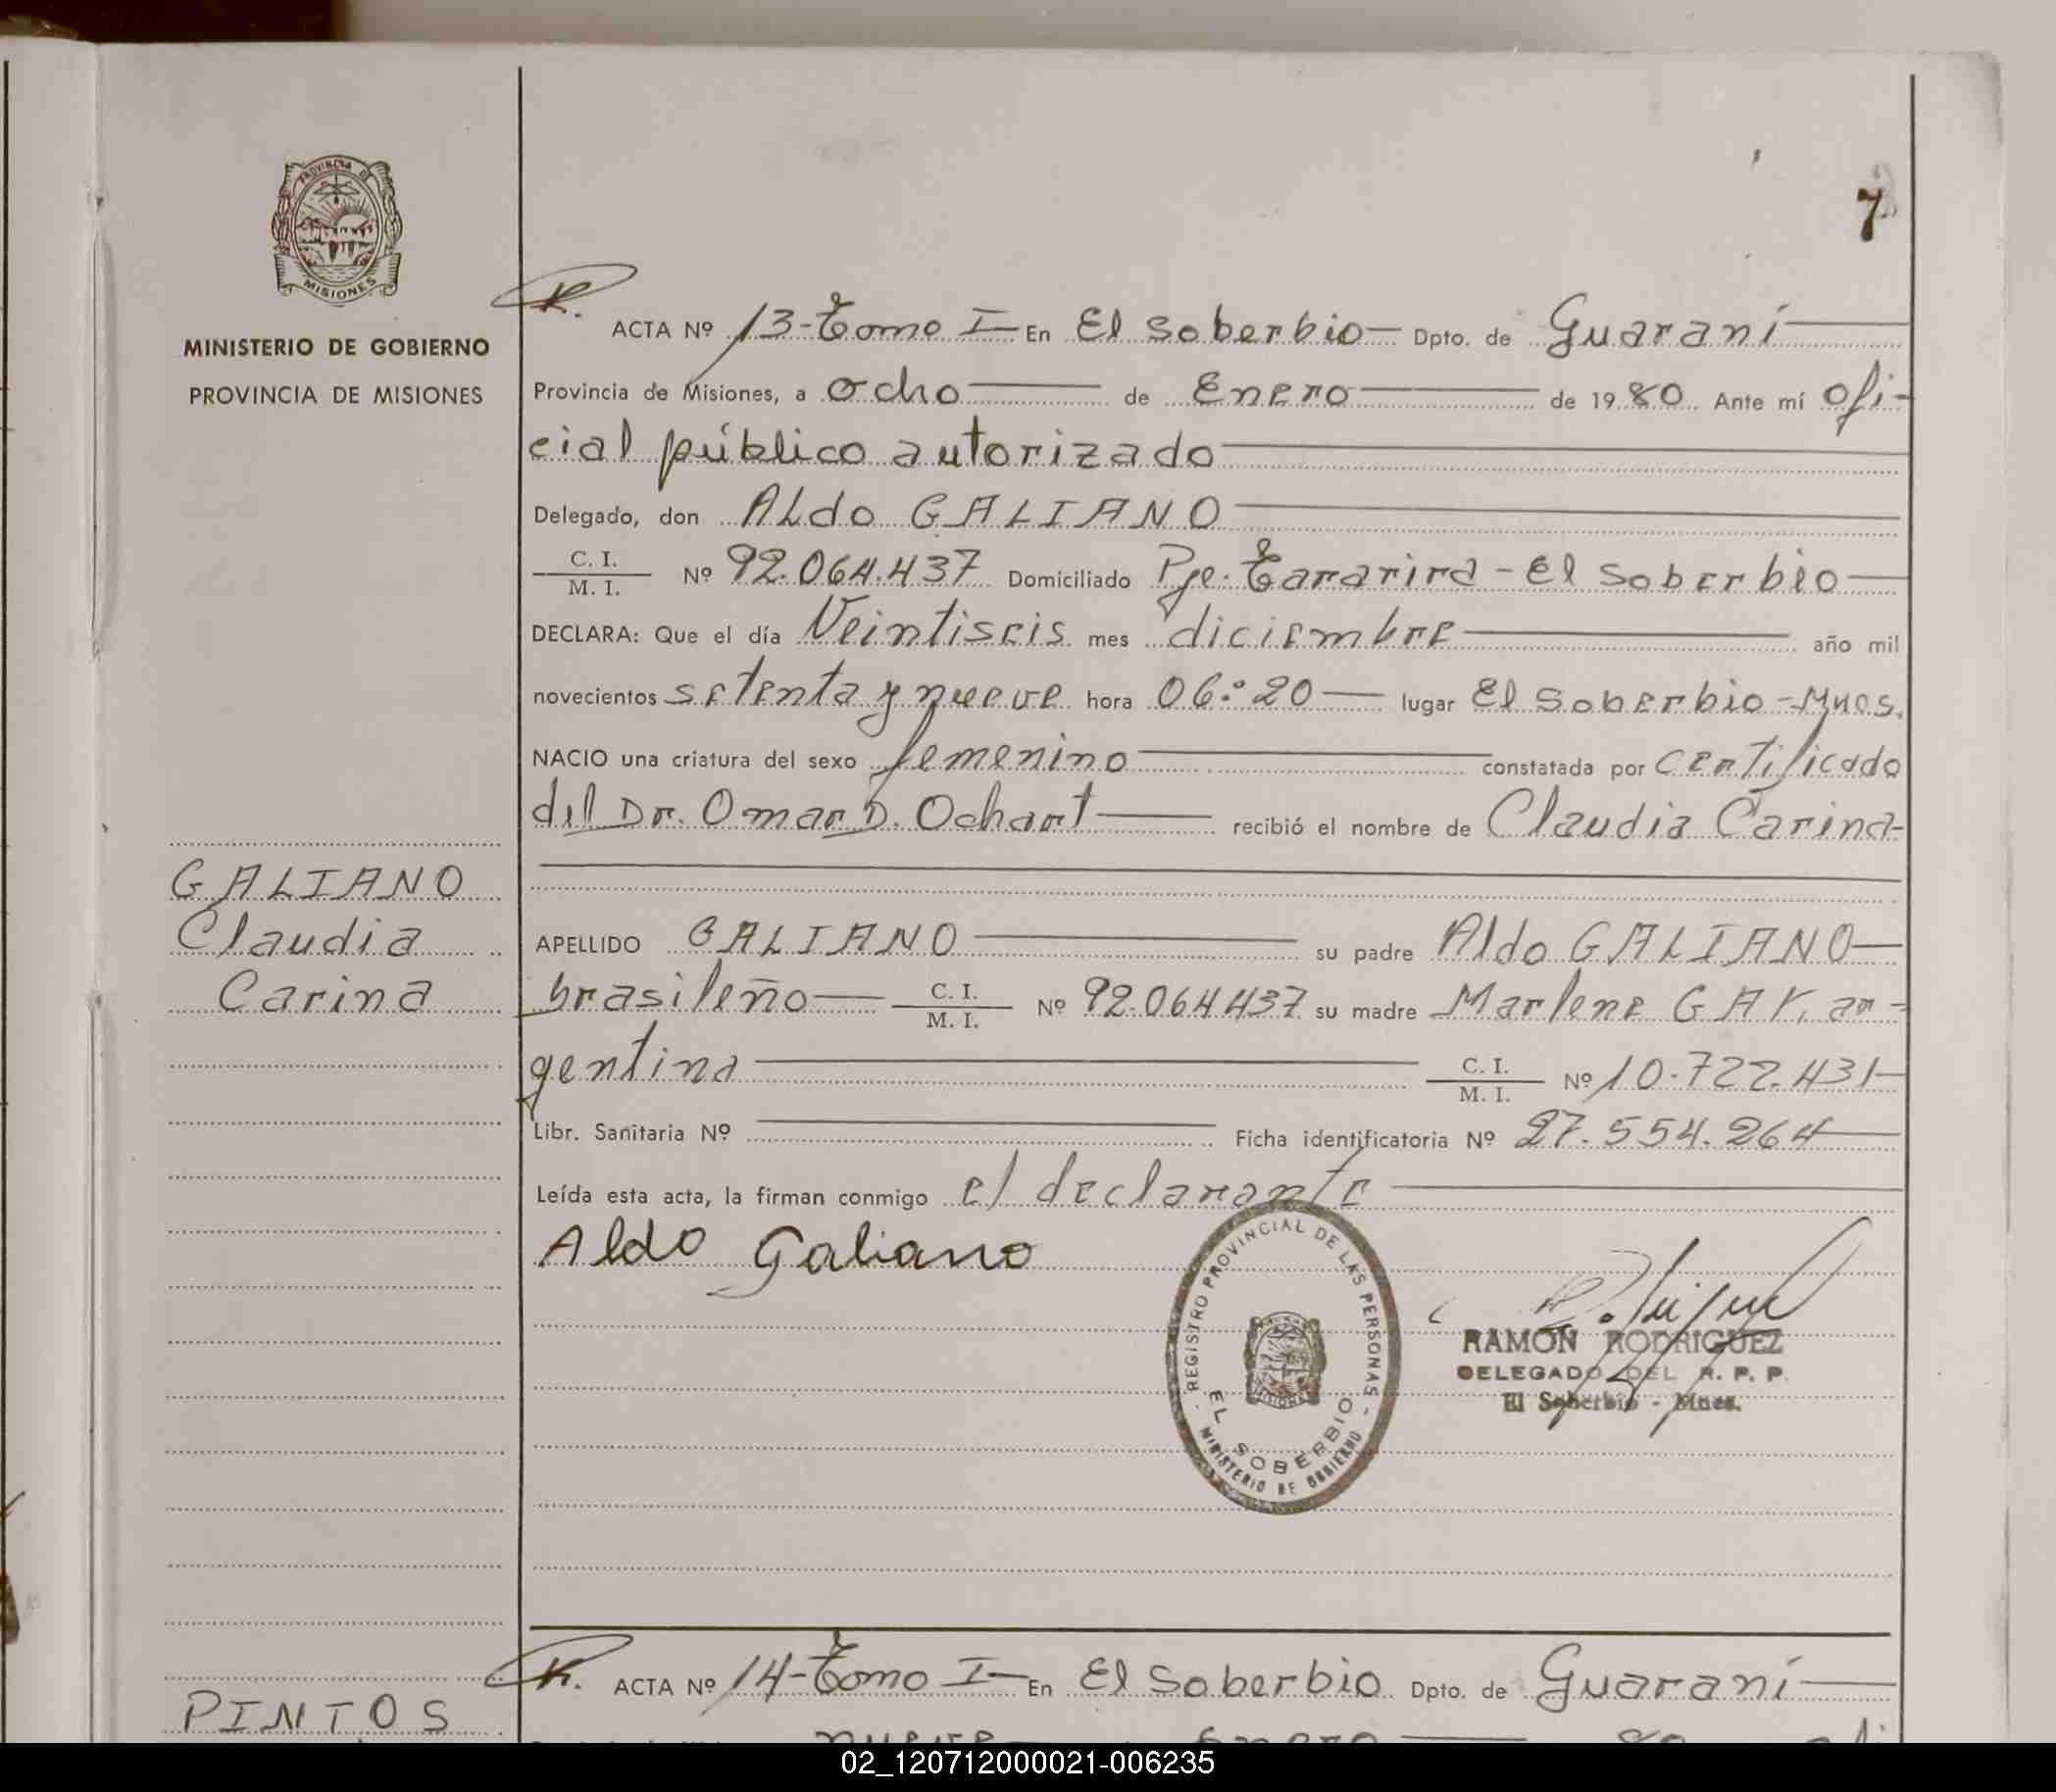 PROVINCIA DE
MISIONES
MINISTERIO DE GOBIERNO
PROVINCIA DE MISIONES
7
ACTA Nº 13-Tomo I En El Soberbio Dpto. de Guaraní
Provincia de Misiones, a ocho de Enero de 1980. Ante mí ofi-
cial público autorizado
Delegado, don Aldo GALIANO
C. I.
M. I. Nº 92.064.437 Domiciliado Pje. Tararira - El Soberbio
DECLARA: Que el día Veintiseis mes diciembre año mil
novecientos setenta y nueve hora 06:20 lugar El Soberbio - Mnes.
NACIO una criatura del sexo femenino constatada por certificado
del Dr. Omar D. Ochart recibió el nombre de Claudia Carina-
GALIANO
Claudia
Carina
APELLIDO GALIANO su padre Aldo GALIANO
brasileño C. I.
M. I. Nº 92.064.437 su madre Marlene GAY, ar-
gentina C. I.
M. I. Nº 10.722.431
Libr. Sanitaria Nº Ficha identificatoria Nº 27.554.264
Leída esta acta, la firman conmigo el declarante
Aldo Galiano
REGISTRO PROVINCIAL DE LAS PERSONAS
EL SOBERBIO
MINISTERIO DE GOBIERNO
RAMON RODRIGUEZ
DELEGADO DEL R. P. P.
El Soberbio - Mnes.
ACTA Nº 14-Tomo I En El Soberbio Dpto. de Guaraní
PINTOS
nueve Enero 80 ofi
02_120712000021-006235